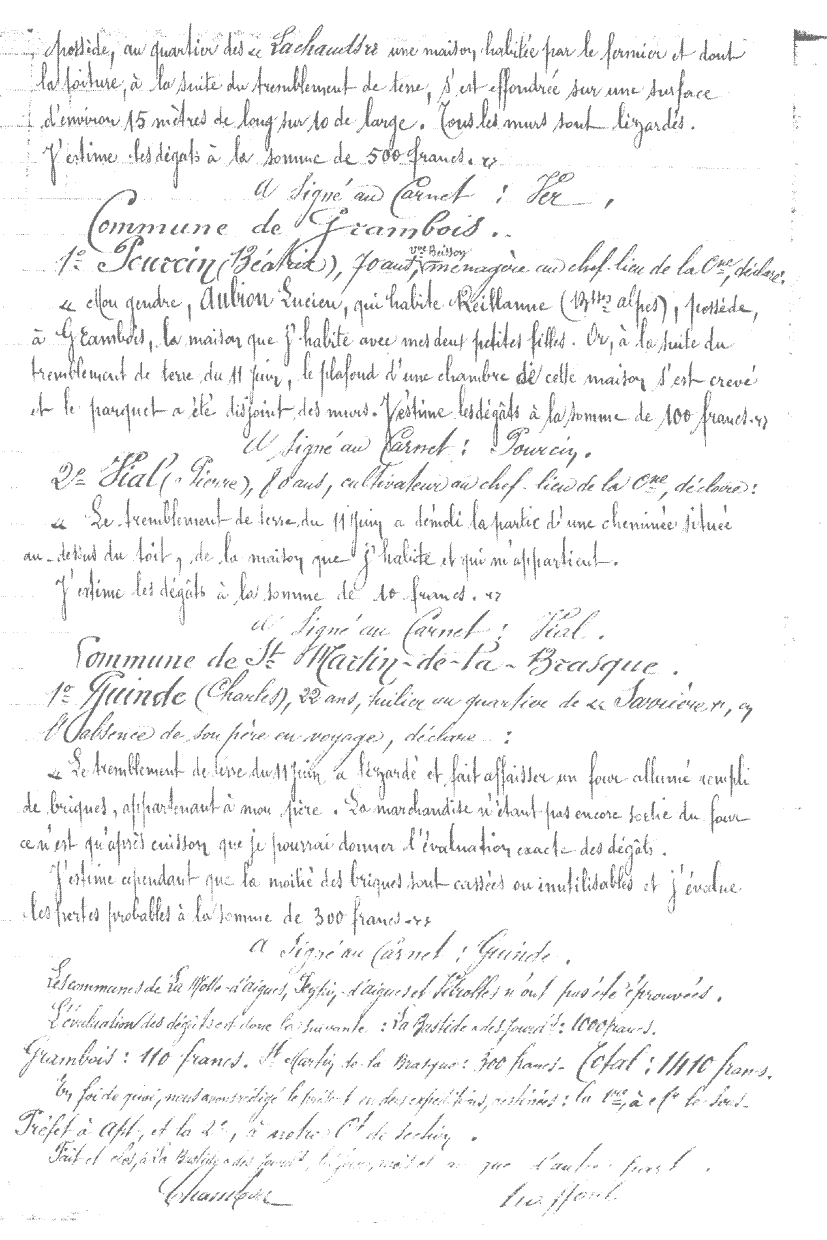 possède, au quartier des « Lachausses une maison habitée par le fermier et dont
la toiture, à la suite du tremblement de terre, s'est effondrée sur une surface
d'environ 15 mètres de long sur 10 de large. Tous les murs sont lézardés.
J'estime les dégâts à la somme de 500 francs. »
A Signé au Carnet : Ver.
Commune de Grambois.
1º Pourcin (Béatrix), 70 ans, vve Buisson ménagère au chef-lieu de la Cne, déclare:
« Mon gendre, Aubion Lucien, qui habite Reillanne (Bsses alpes), possède,
à Grambois, la maison que j'habite avec mes deux petites filles. Or, à la suite du
tremblement de terre du 11 juin, le plafond d'une chambre de cette maison s'est crevé
et le parquet a été disjoint des murs. J'estime les dégâts à la somme de 100 francs. »
A signé au Carnet : Pourcin.
2º Vial (Pierre), 70 ans, cultivateur au chef-lieu de la Cne, déclare :
« Le tremblement de terre du 11 juin a démoli la partie d'une cheminée située
au-dessus du toit, de la maison que j'habite et qui m'appartient.
J'estime les dégâts à la somme de 10 francs. »
A Signé au Carnet : Vial.
Commune de St Martin-de-la-Brasque.
1º Guinde (Charles), 22 ans, tuilier au quartier de « », en
l'absence de son père en voyage, déclare :
« Le tremblement de terre du 11 juin a lézardé et fait affaisser un four allumé rempli
de briques, appartenant à mon père. La marchandise n'étant pas encore sortie du four
ce n'est qu'après cuisson que je pourrai donner l'évaluation exacte des dégâts.
J'estime cependant que la moitié des briques sont cassées ou inutilisables et j'évalue
les pertes probables à la somme de 300 francs. »
A signé au Carnet : Guinde.
Les communes de La Motte-d'aigues, Peypin-d'aigues et Vitrolles n'ont pas été éprouvées.
L'évaluation des dégâts est donc la suivante : La Bastide-des-Jourdns : 1000 francs.
Grambois : 110 francs. St Martin de la Brasque : 300 francs. Total : 1410 francs.
En foi de quoi, nous avons rédigé le présent en deux expéditions, destinées : la 1ère, à Mr le Sous-
Préfet à Apt, et la 2e, à notre Ct de section.
Fait et clos, à La Bastide-des-Jourdns, les jour, mois et an que d'autre part.